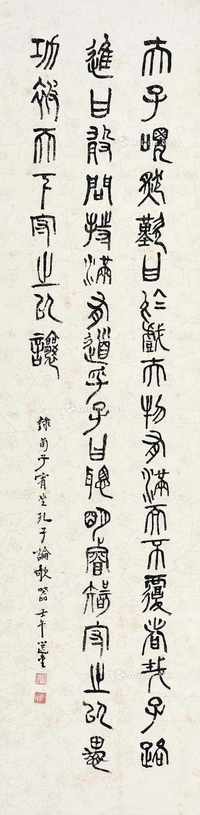 夫子喟然歎曰於戲夫物有滿而不覆者哉子路
進曰敢問持滿有道乎子曰聰明睿智守之以愚
功被天下守之以讓
錄荀子宥坐孔子論欹器壬午選堂